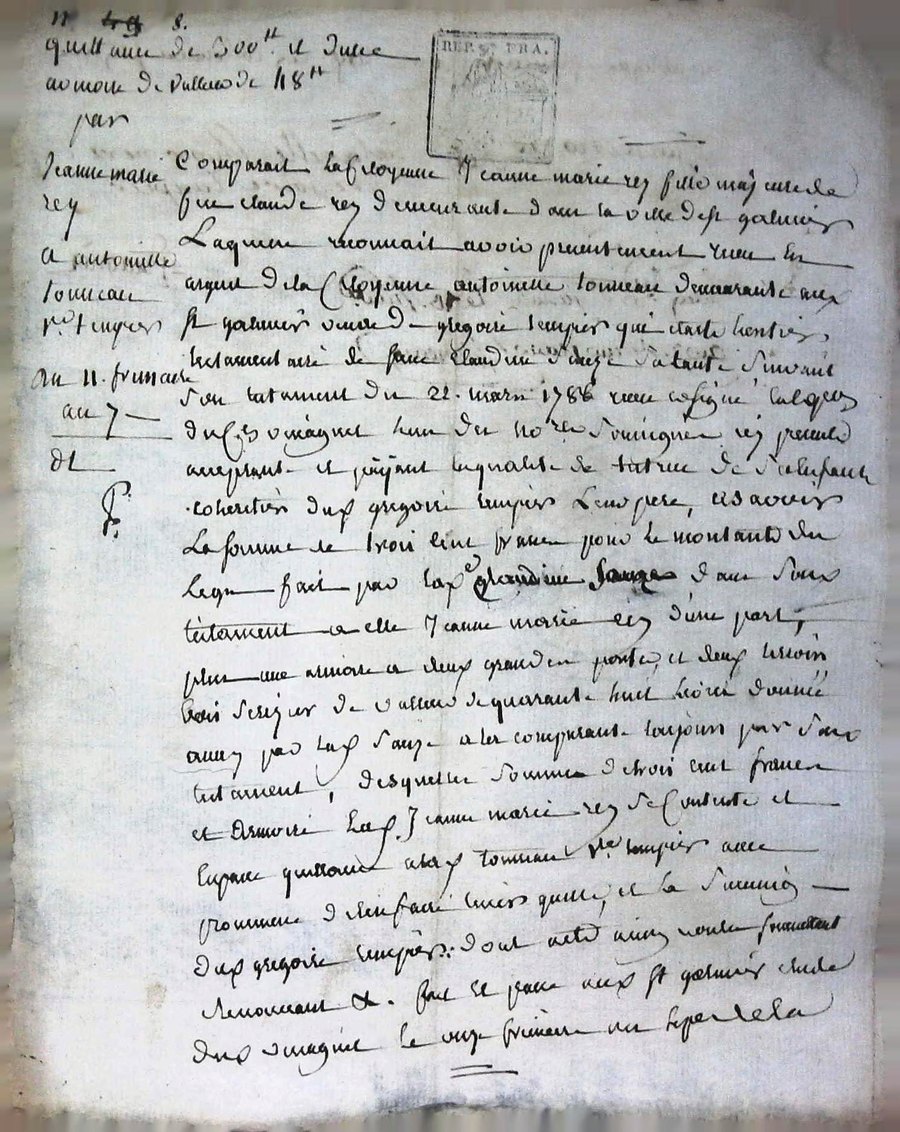 11 8.
quittance de 300tt. et d'une
armoire de valleur de 48tt
par
Jeanne marie
rey
a antoinette
tonneau
ve tempier
du 11. frimaire
an 7
dt
REP. FRA.
Comparait la Citoyenne Jeanne marie rey fille majeure de
feu claude rey demeurante dans la ville de st galmier
Laquelle reconnait avoir presentement receu en
argent de la Citoyenne antoinette tonneau demeurante aux
st galmier veuve de gregoire tempier qui etoit heritier
testamentaire de feue Claudine Sauze sa tante suivant
son testament du 22. mars 1788 receu
du hun des no.res soussignés icy presente
acceptante et païant en qualité de tutrice de
coheritiers dud gregoire tempier Leur pere, a savoir
La somme de trois cent francs pour le montant du
Legs fait par lad Claudine Sauze dans sond
testament a elle Jeanne marie rey d'une part,
plus une armoire a deux grandes portes, et deux tiroirs
bois serizier de valleur de quarante huit livres donnée
aussy par lad Sauze a la comparante toujours par sond
testament, desquelles sommes de trois cent francs
et armoire Lad. Jeanne marie rey se Contente et
En passe quittance a lad tonneau ve tempier avec
promesse de l'en faire tenir quitte, et la succession
dud gregoire tempier. dont acte ainsy voulu promettant
renonceant &. fait et passé aud st galmier etude
dud le onze frimaire an sept de la